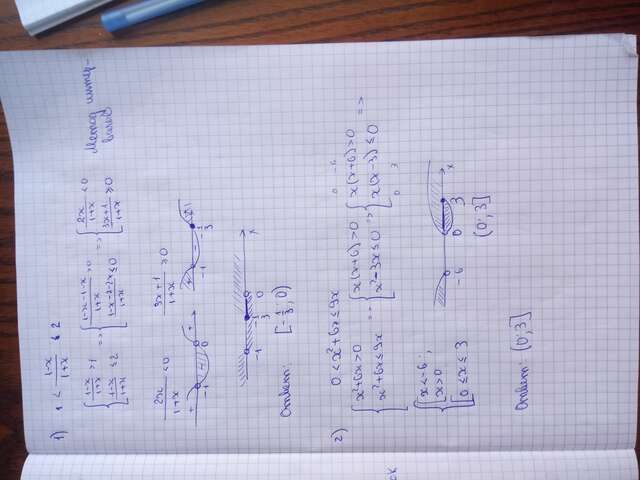 1) 1 < (1-x)/(1+x) ≤ 2
{ (1-x)/(1+x) > 1 ; (1-x)/(1+x) ≤ 2 => { (1-x-1-x)/(1+x) > 0 ; (1-x-2-2x)/(1+x) ≤ 0 => { 2x/(1+x) < 0 ; (3x+1)/(1+x) ≥ 0
Метод интер-
валов
2x/(1+x) < 0 (3x+1)/(1+x) ≥ 0
+ - + + - +
-1 0 -1 -1/3
-1 -1/3 0 x
Ответ: [-1/3; 0)
2) 0 < x²+6x ≤ 9x
{ x²+6x > 0 ; x²+6x ≤ 9x => { x(x+6) > 0 ; x²-3x ≤ 0 => { x(x+6) > 0 ; x(x-3) ≤ 0 =>
0 -6
0 3
{ [ x < -6; x > 0 ; [ 0 ≤ x ≤ 3
-6 0 3 x
(0; 3]
Ответ: (0; 3]
ок